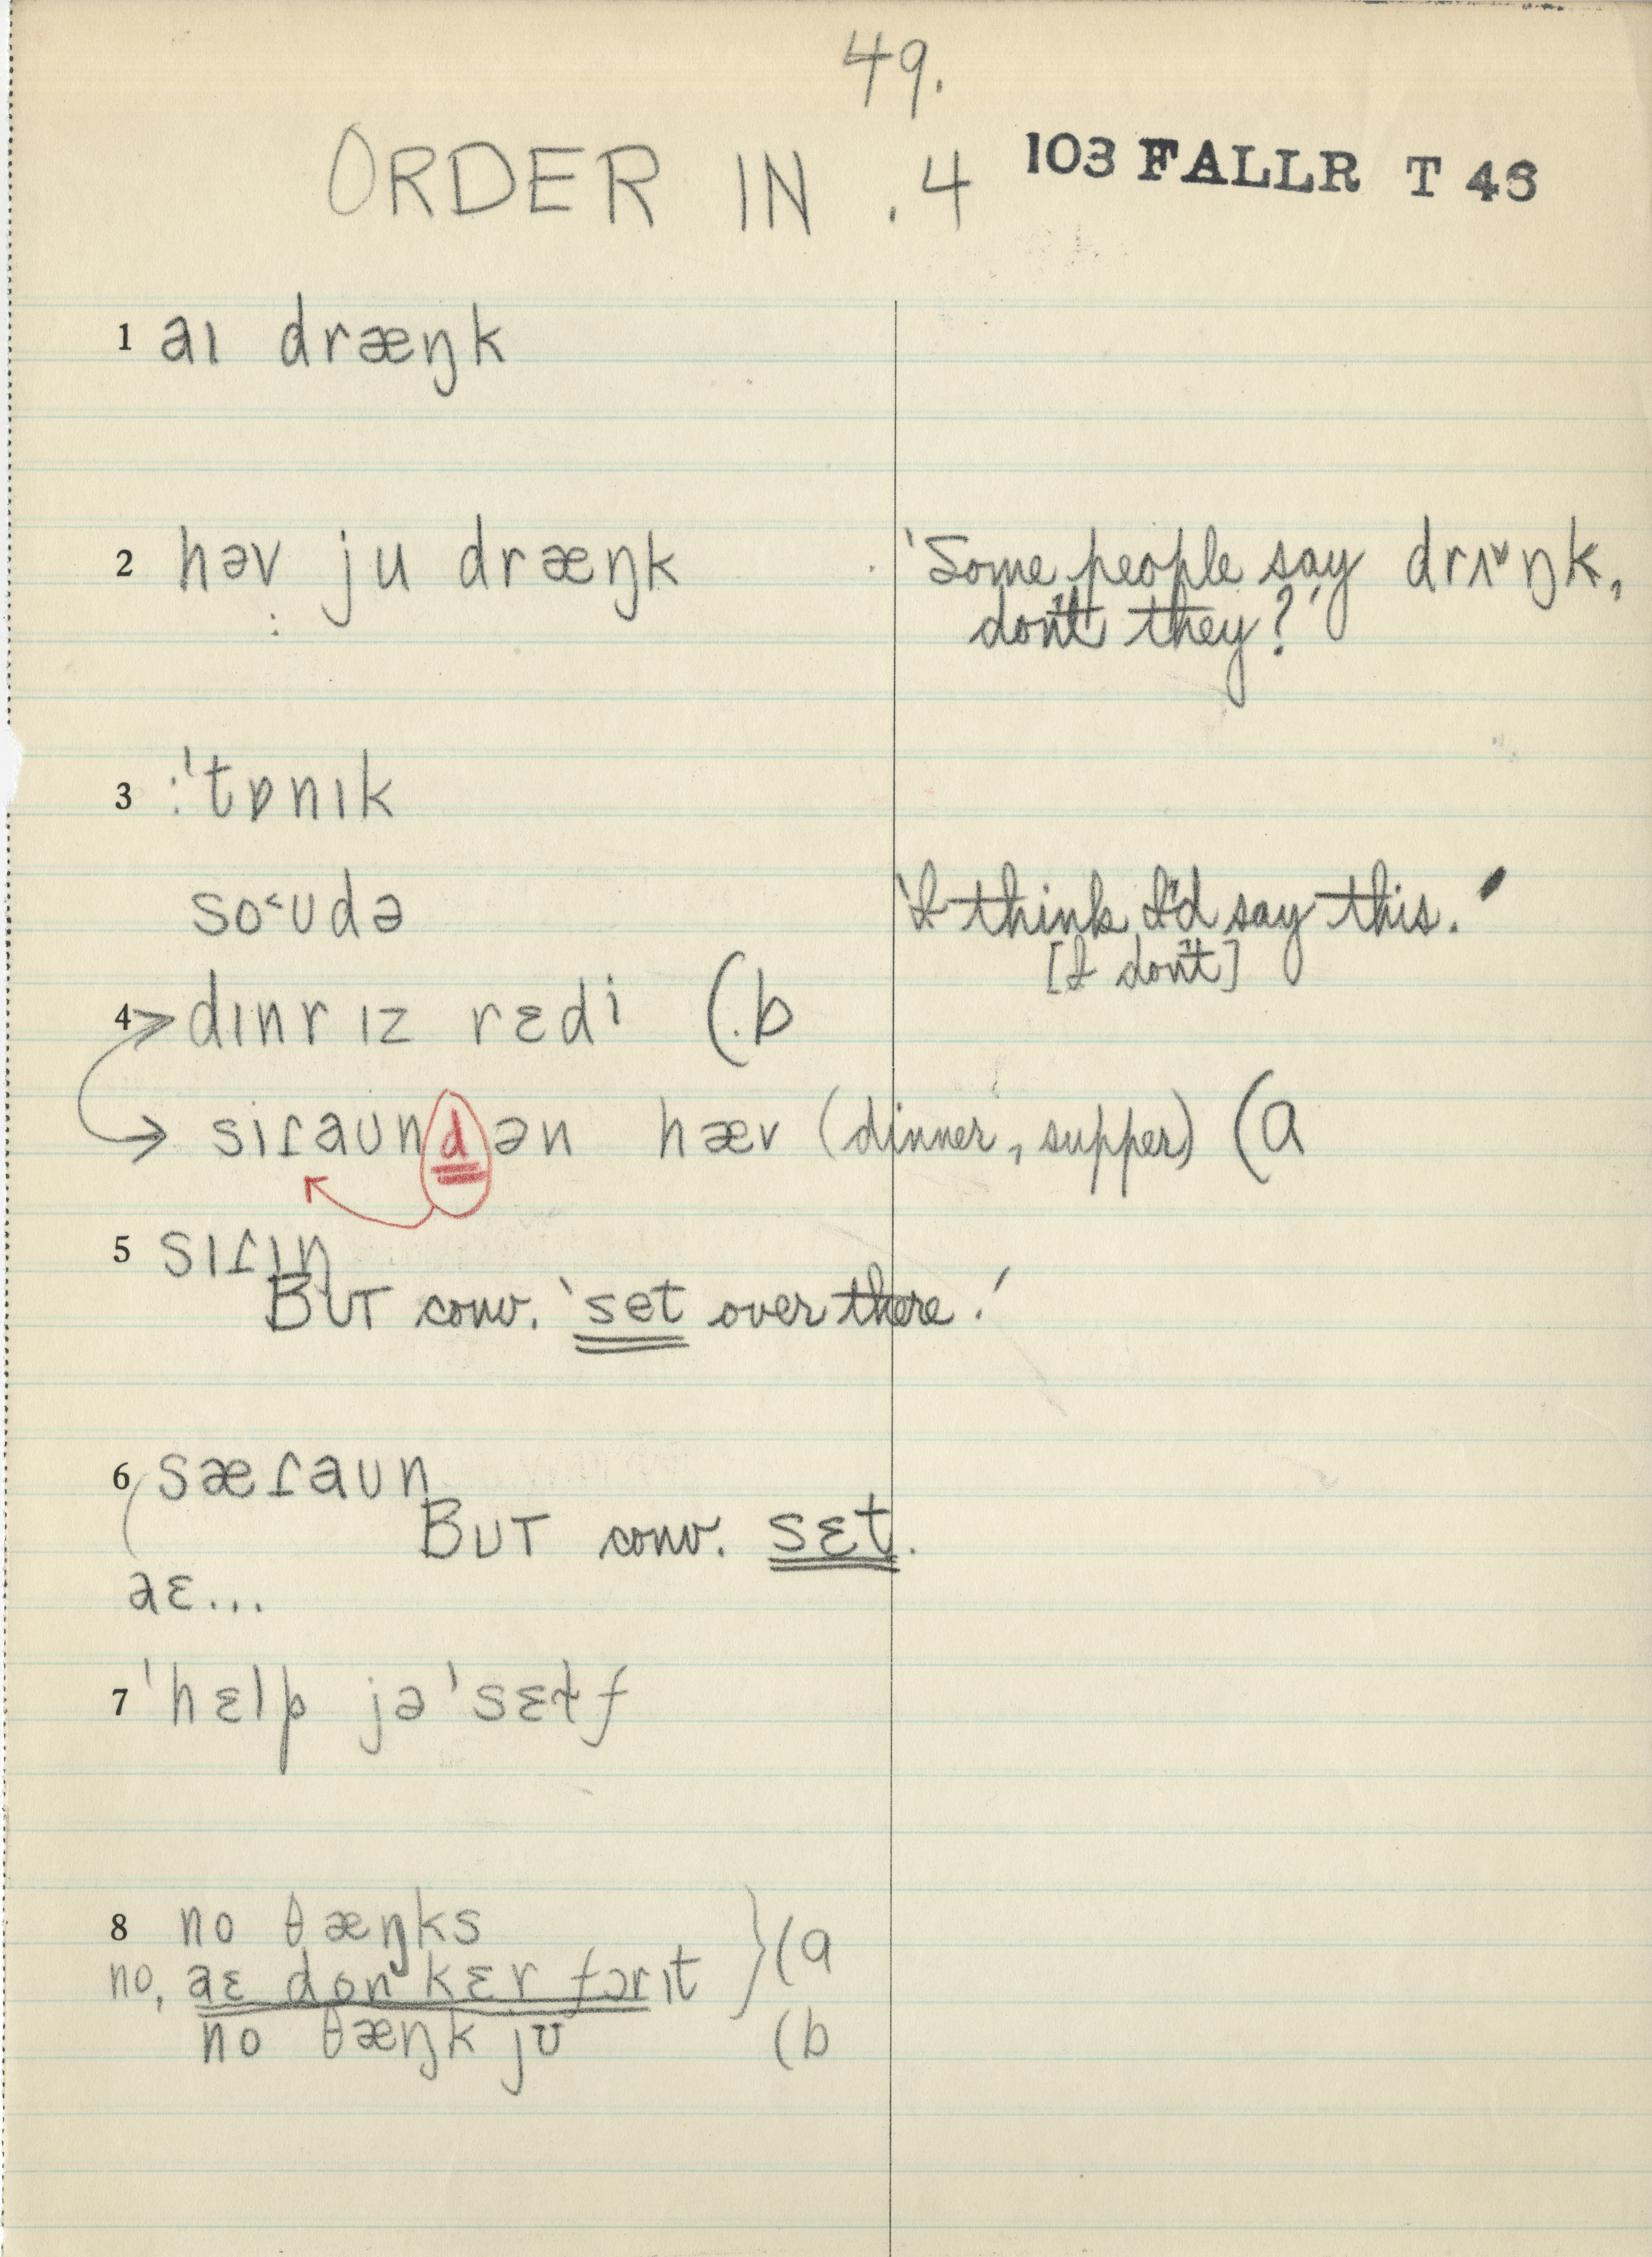 49.
ORDER IN .4 103 FALLR T 48
1 aɪ dræŋk
2 həv ju dræŋk 'Some people say drʌ˅ŋk,
don't they?'
3 :ˈtɒnɪk
so˂ʊdə 'I think I'd say this.'
[I don't]
4 > dɪnr ɪz rɛdi (.b
→ siɾaʊn d ən hæv (dinner, supper) (a
5 sɪɾɪn
BUT conv. 'set over there.'
6 sæɾaʊn
BUT conv. sɛt.
aɛ...
7 ˈhɛlp jəˈsɛɫf
8 no θæŋks } (a
no, aɛ don kɛr fɔrɪt
no θæŋk jʊ (b